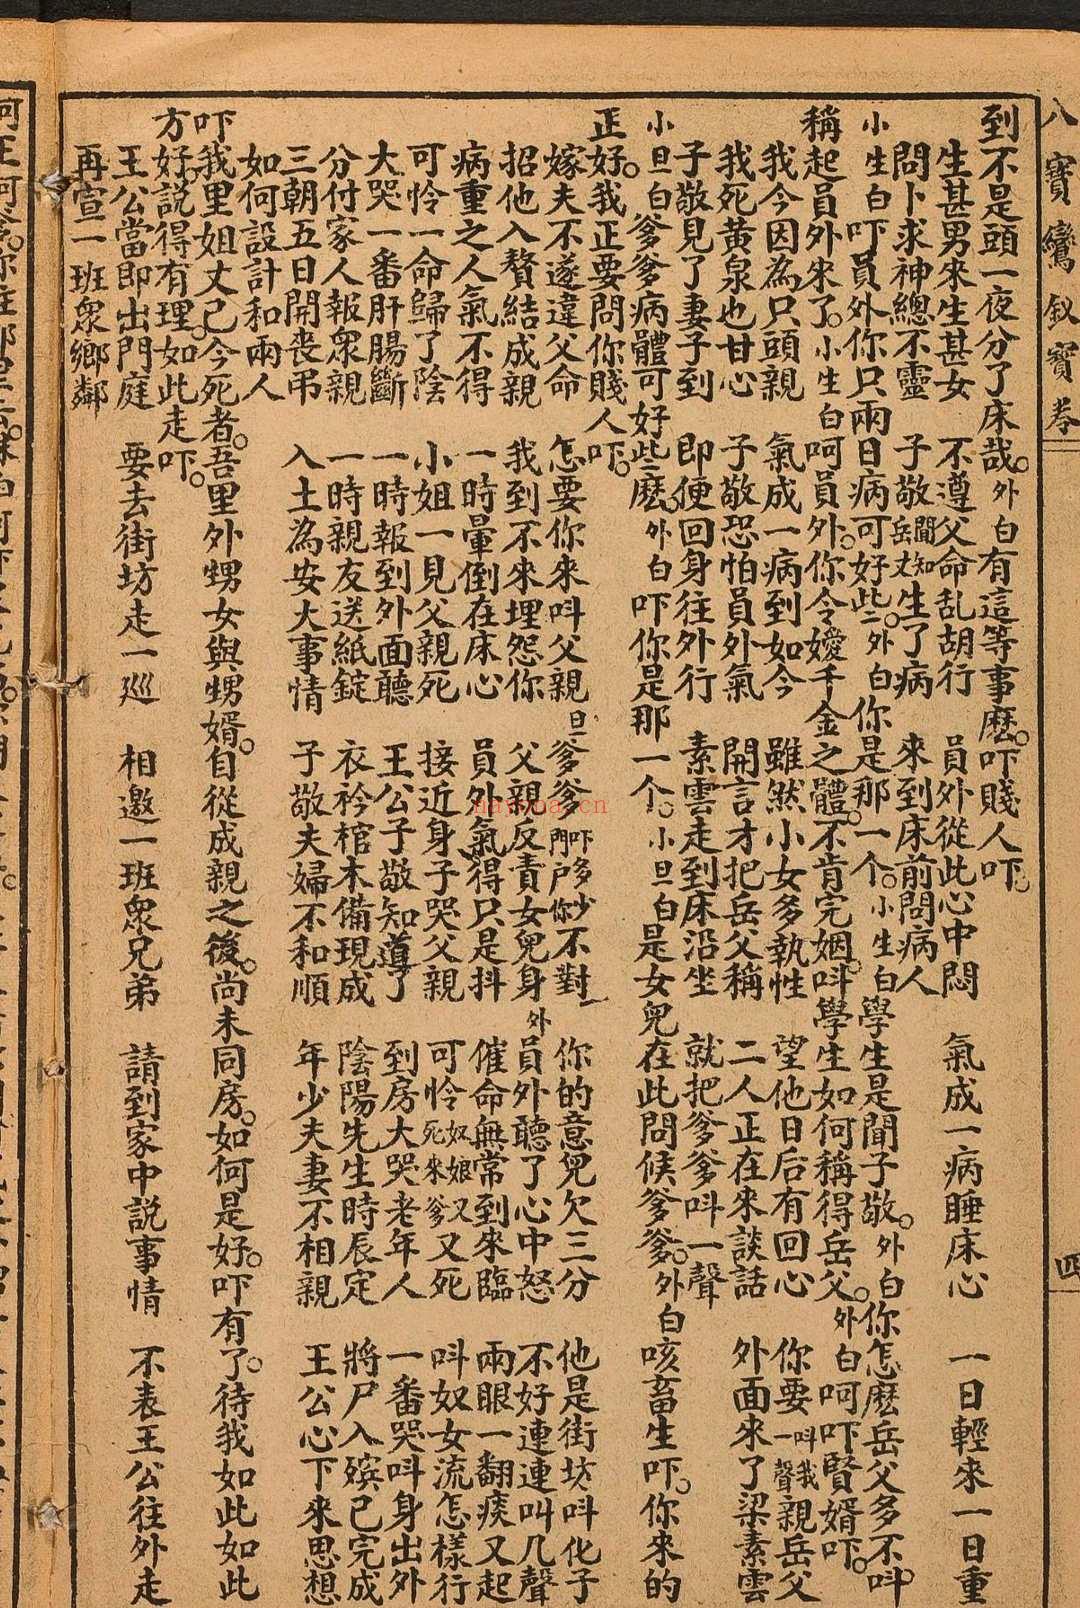 八寶鸞釵寶卷
四
到不是頭一夜分了床哉。外白有這等事麽。吓賤人吓。
生甚男來生甚女 不遵父命乱胡行 員外從此心中悶 氣成一病睡床心 一日輕來一日重
問卜求神總不靈 子敬聞知岳丈生了病 來到床前問病人
小生白吓員外你只兩日病可好些。外白你是那一个。小生白學生是聞子敬。外白你怎麽岳父多不呌
稱起員外來了。小生白呵員外。你令嬡千金之體。不肯完姻。呌學生如何稱得岳父。外白呵吓賢婿吓。
我今因為只頭親 氣成一病到如今 雖然小女多執性 望他日后有回心 你要呌我一聲親岳父
我死黄泉也甘心 子敬恐怕員外氣 開言才把岳父稱 二人正在來談話 外面來了梁素雲
子敬見了妻子到 即便回身往外行 素雲走到床沿坐 就把爹爹呌一聲
小旦白爹爹病體可好些麽。外白吓你是那一个。小旦白是女兒在此問候爹爹。外白咳畜生吓。你來的
正好。我正要問你賤人吓。
嫁夫不遂違父命 怎要你來呌父親 旦爹爹吓門户多少你不對 你的意兒欠三分 他是街坊呌化子
招他入贅結成親 我到不來埋怨你 父親反責女兒身 外員外聽了心中怒 不好連連叫几聲
病重之人氣不得 一時暈倒在床心 員外氣得只是抖 催命無常到來臨 兩眼一翻痰又起
可怜一命歸了陰 小姐一見父親死 接近身子哭父親 可怜奴娘死來爹又死 呌奴女流怎樣行
大哭一番肝腸斷 一時報到外面聽 王公子敬知道了 到房大哭老年人 一番哭呌身出外
分付家人報衆親 一時親友送紙錠 衣衿棺木備現成 陰陽先生時辰定 將尸入殯已完成
三朝五日開喪吊 入土為安大事情 子敬夫婦不和順 年少夫妻不相親 王公心下來思想
如何設計和兩人
吓我里姐丈已今死者。吾里外甥女與甥婿。自從成親之後。尚未同房。如何是好。吓有了。待我如此如此
方好。説得有理。如此走吓。
王公當即出門庭 要去街坊走一巡 相邀一班衆兄弟 請到家中説事情 不表王公往外走
再宣一班衆鄉鄰